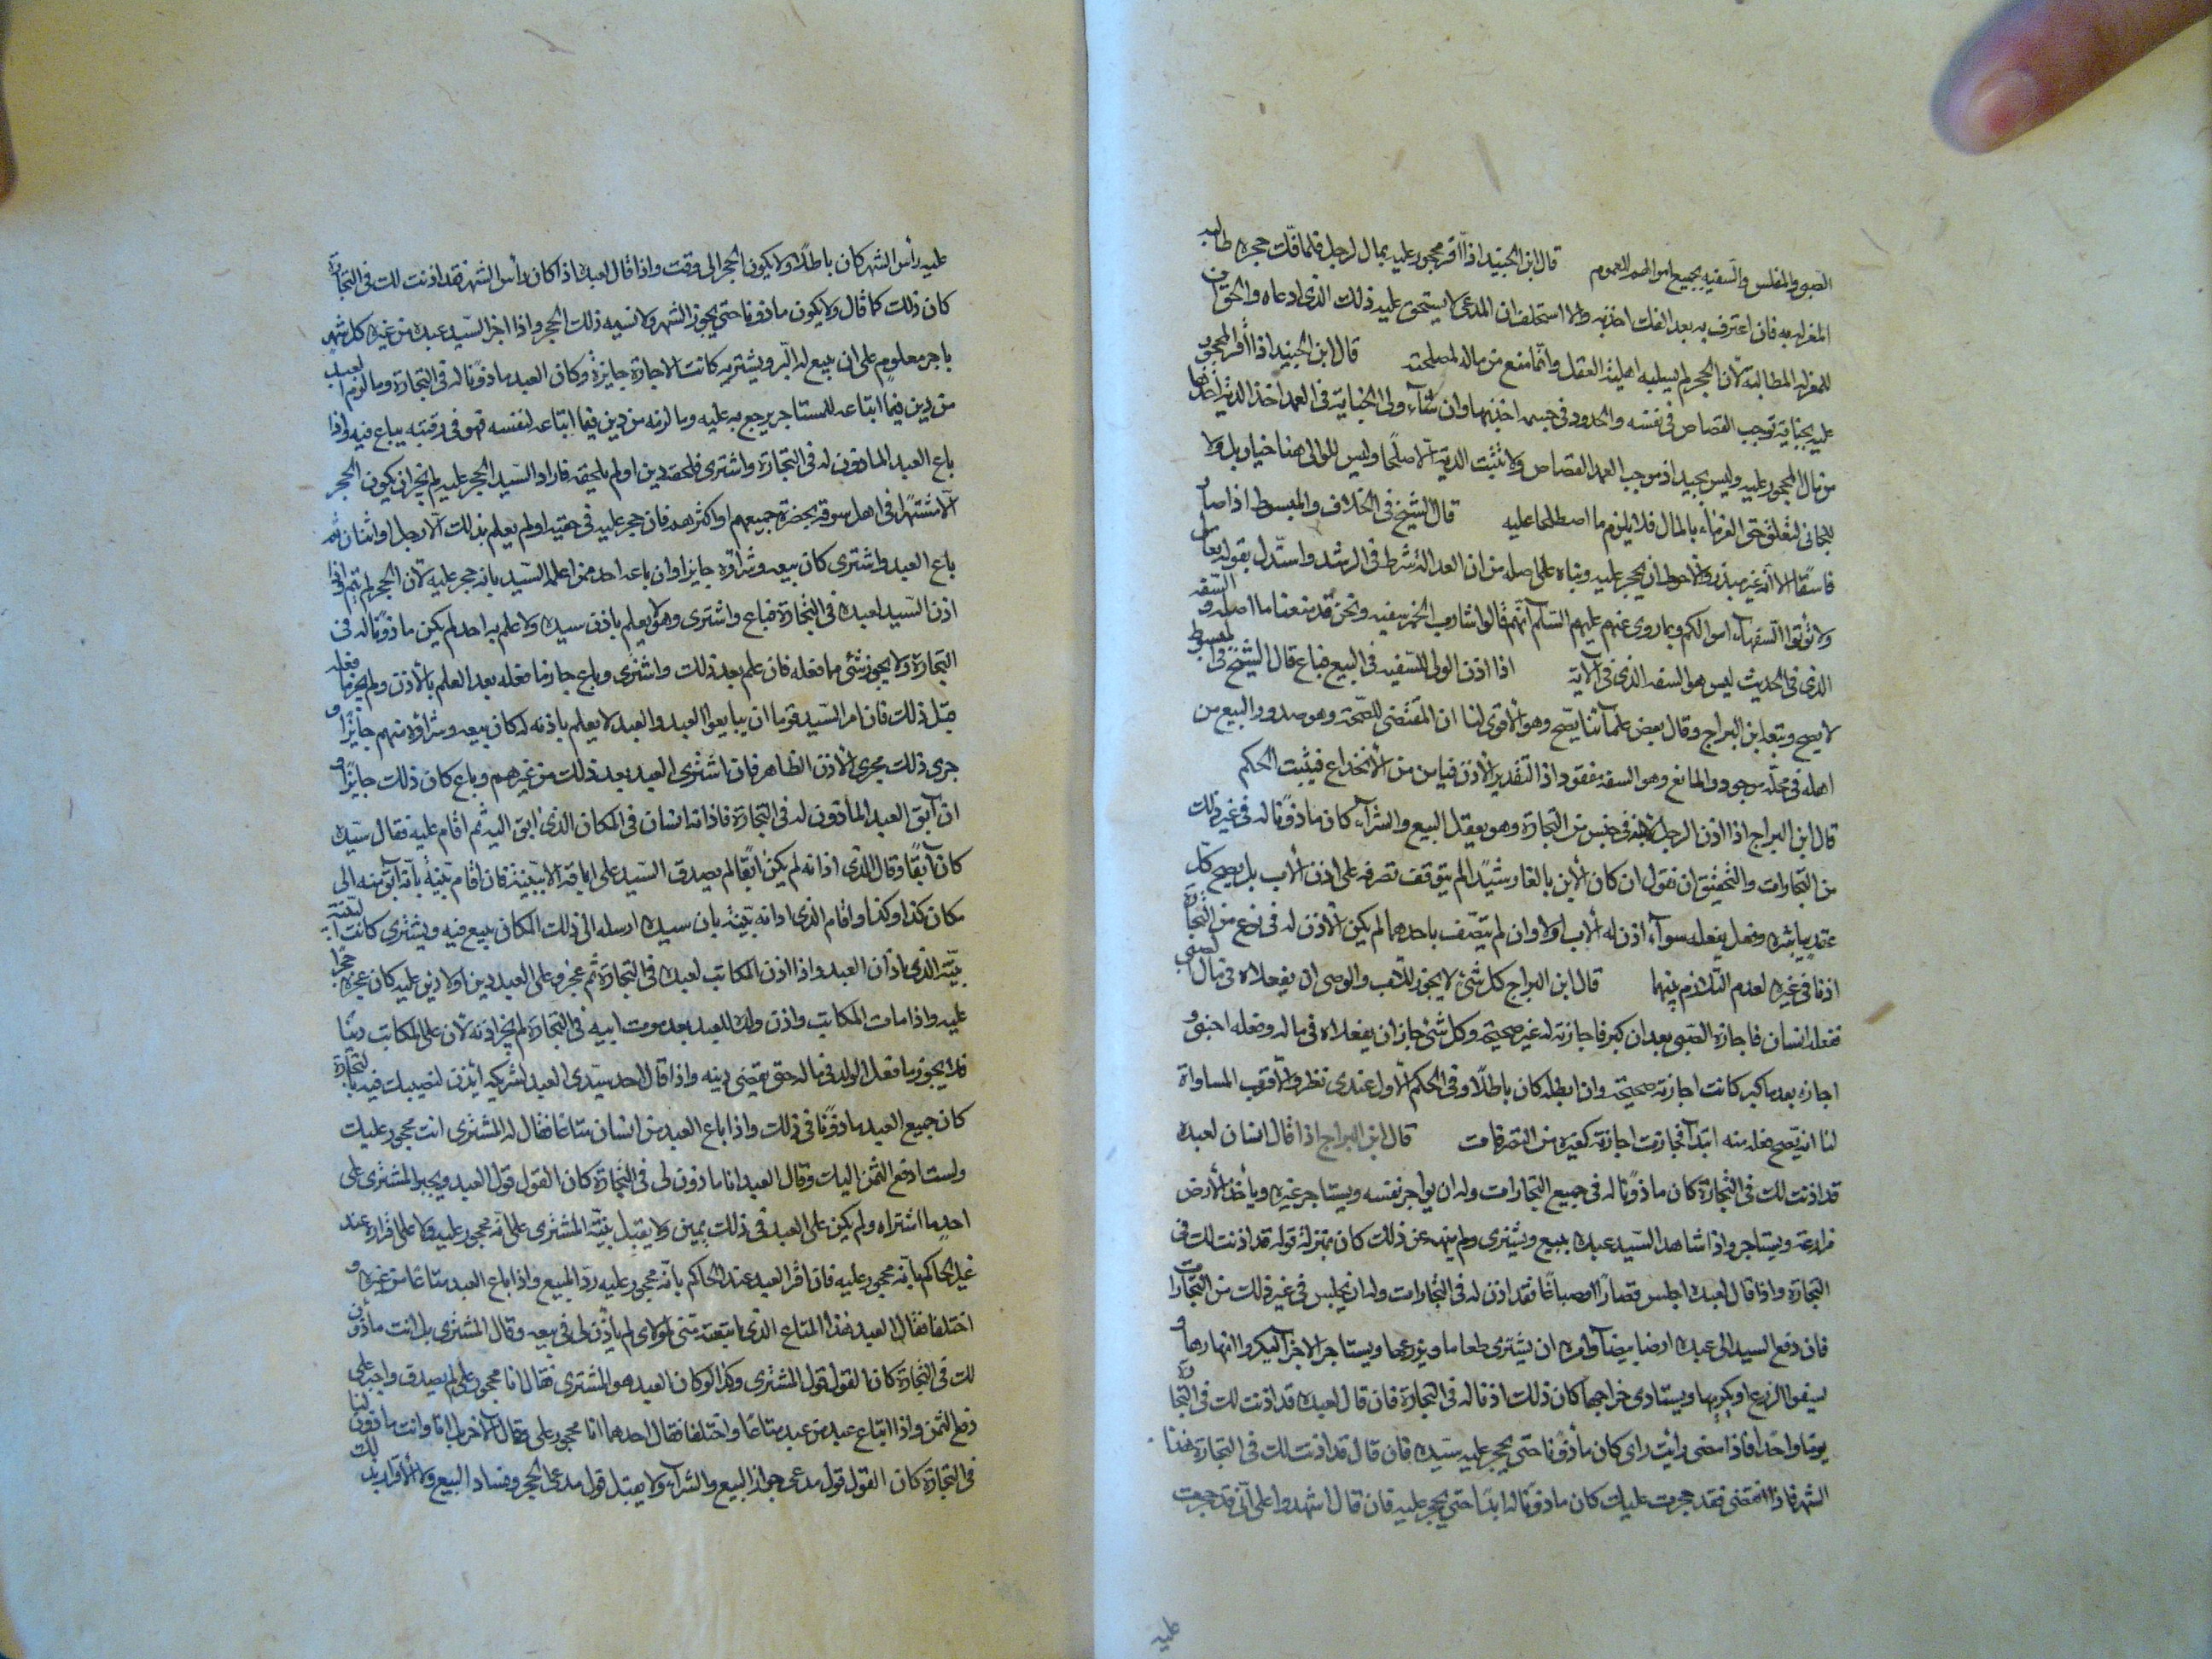 الصبى والمفلس والسفيه بجميع اموالهم للعموم قال ابن الجنيد اذا اقر محجور عليه بمال لرجل فلما فك حجره طالبه
المقر له به فان اعترف به بعد الفك اخذ به والا استحلف ان المدعى لا يستحق عليه ذلك الذى ادعاه والحق ان
للمقر له المطالبة لان الحجر لم يسلبه اهلية العقل وانما منع من ماله لمصلحته قال ابن الجنيد اذا اقر المحجور
عليه بجناية توجب القصاص فى نفسه والحدود فى جسمه اخذ بهما وان شاء ولى الجناية فى العمد اخذ الدية اخذها
من مال المحجور عليه وليس بجيد اذ موجب العمد القصاص ولا تثبت الدية الا صلحا وليس للولى هنا خيار بل ولا
للجانى لتعلق حق الغرماء بالمال فلا يلزم ما اصطلحا عليه قال الشيخ فى الخلاف والمبسوط اذا صار
فاسقا الا انه غير مبذر فالاحوط ان يحجر عليه وبناه على اصله من ان العدالة شرط فى الرشد واستدل بقوله تعالى
ولا تؤتوا السفهاء اموالكم وبما روى عنهم عليهم السلم انهم قالوا شارب الخمر سفيه ونحن قد منعنا ما اصله والسفه
الذى فى الحديث ليس هو السفه الذى فى الاية اذا اذن الولى للسفيه فى البيع فباع قال الشيخ فى المبسوط
لا يصح وتبعه ابن البراج وقال بعض علمائنا يصح وهو الاقوى لنا ان المقتضى للصحة وهو صدور البيع من
اهله فى محله موجود والمانع وهو السفه مفقود اذ التقدير الاذن فيامن من الانخداع فيثبت الحكم
قال ابن البراج اذا اذن الرجل لابنه فى جنس من التجارة وهو يعقل البيع والشراء كان ماذونا له فى غير ذلك
من التجارات والتحقيق ان نقول ان كان الابن بالغا رشيدا لم يتوقف تصرفه على اذن الاب بل يصح كل
عقد يباشره وفعل يفعله سواء اذن له الاب اولا وان لم يتصف باحدهما لم يكن الاذن له فى نوع من التجارة
اذنا فى غيره لعدم التلازم بينهما قال ابن البراج كل شئ لا يجوز للاب والوصى ان يفعلاه فى مال الصبى
ففعله انسان فاجازه الصبى بعد ان كبر فاجازته له غير صحيحة وكل شئ جاز ان يفعلاه فى ماله وفعله اجنبى و
اجازه بعد ما كبر كانت اجازته صحيحة وان ابطله كان باطلا وفى الحكم الاول عندى نظر والاقرب المساواة
لنا انه يصح فعله منه ابتداء فجازت اجازته كغيره من التصرفات قال ابن البراج اذا قال انسان لعبده
قد اذنت لك فى التجارة كان ماذونا له فى جميع التجارات وله ان يواجر نفسه ويستاجر غيره وياخذ الارض
مزارعة ويستاجر واذا شاهد السيد عبده يبيع ويشترى ولم ينهه عن ذلك كان بمنزلة قوله قد اذنت لك فى
التجارة واذا قال لعبده اجلس قصارا او صباغا فقد اذن له فى التجارات وله ان يجلس فى غير ذلك من التجارات
فان دفع السيد الى عبده ارضا بيضاء وامره ان يشترى طعاما ويزرعها ويستاجر الاجراء ليكروا انهارها و
يسقوا الزرع او يكربها ويستادى خراجها كان ذلك اذنا له فى التجارة فان قال لعبده قد اذنت لك فى التجارة
يوما واحدا فاذا مضى رايت رايى كان ماذونا حتى يحجر عليه سيده فان قال قد اذنت لك فى التجارة هذا
الشهر فاذا انقضى فقد حجرت عليك كان ماذونا له ابدا حتى يحجر عليه فان قال اشهدوا على انى قد حجرت
عليه
عليه راس الشهر كان باطلا ولا يكون الحجر الى وقت واذا قال لعبده اذا كان راس الشهر فقد اذنت لك فى التجارة
كان ذلك كما قال ولا يكون ماذونا حتى يجوز الشهر ولا نسيه ذلك الحجر واذا اجر السيد عبده من غيره كل شهر
باجر معلوم على ان يبيع له البر ويشتريه كانت الاجارة جايزة وكان العبد ماذونا له فى التجارة وما لزم العبد
من دين فيما ابتاعه للمستاجر يرجع به عليه وما لزمه من دين فيما ابتاعه لنفسه فهو فى رقبته يباع فيه واذا
باع العبد الماذون له فى التجارة واشترى فلحقه دين او لم يلحقه فاراد السيد الحجر عليه لم يجز ان يكون الحجر
الا مشتهرا فى اهل سوقه بحضرة جميعهم او اكثرهم فان حجر عليه فى حقيه او لم يعلم بذلك الا رجل او اثنان ثم
باع العبد واشترى كان بيعه وشراؤه جايزا وان باعه احد ممن اعلمه السيد بانه حجر عليه لان الحجر لم يتم اذا
اذن السيد لعبده فى التجارة فباع واشترى وهو لا يعلم باذن سيده ولا علم به احد لم يكن ماذونا له فى
التجارة ولا يجوز شئ مما فعله فان علم بعد ذلك واشترى وباع جاز ما فعله بعد العلم بالاذن ولم يجز ما فعله
قبل ذلك فان امر السيد قوما ان يبايعوا العبد والعبد لا يعلم باذنه له كان بيعه وشراؤه منهم جايزا و
جرى ذلك مجرى الاذن الظاهر فان اشترى العبد بعد ذلك من غيرهم وباع كان ذلك جايزا و
ان آبق العبد الماذون له فى التجارة فاذانه انسان فى المكان الذى ابق اليه ثم اقام عليه فقال سيده
كان آبقا وقال الذى اذانه لم يكن ابقا لم يصدق السيد على اباقه الا ببينة فان اقام بينة بانه آبق منه الى
مكان كذا وكذا واقام الذى ادانه بينة بان سيده ارسله الى ذلك المكان يبيع فيه ويشترى كانت البينة
بينة الذى ادان العبد واذا اذن المكاتب لعبده فى التجارة ثم عجز وعلى العبد دين او لا دين عليه كان عجزه حجرا
عليه واذا مات المكاتب واذن ولده للعبد بعد موت ابيه فى التجارة لم يجز اذنه لان على المكاتب دينا
فلا يجوز ما فعل الولد فى ماله حتى يقضى دينه واذا قال احد سيدى العبد لشريكه ايذن لنصيبك فيه بالتجارة
كان جميع العبد ماذونا فى ذلك واذا باع العبد من انسان متاعا فقال له المشترى انت محجور عليك
ولست ادفع الثمن اليك وقال العبد انا ماذون لى فى التجارة كان القول قول العبد ويجبر المشترى على
احد ما اشتراه ولم يكن على العبد فى ذلك يمين ولا يقبل بينة المشترى على انه محجور عليه ولا على اقراره عند
غير الحاكم بانه محجور عليه فان اقر العبد عند الحاكم بانه محجور عليه رد المبيع واذا باع العبد متاعا من غيره و
اختلفا فقال العبد هذا المتاع الذى ابتعته منى لمولاى لم ياذن لى فى بيعه وقال المشترى بل انت ماذون
لك فى التجارة كان القول قول المشترى وكذا لو كان العبد هو المشترى فقال انا محجور على لم يصدق واجبر على
دفع الثمن واذا ابتاع عبد من عبد متاعا واختلفا فقال احدهما انا محجور على وقال الاخر بل انا وانت ماذون لنا
فى التجارة كان القول قول مدعى جواز البيع والشراء ولا يقبل قول مدعى الحجر وفساد البيع ولا الاقرار بذلك